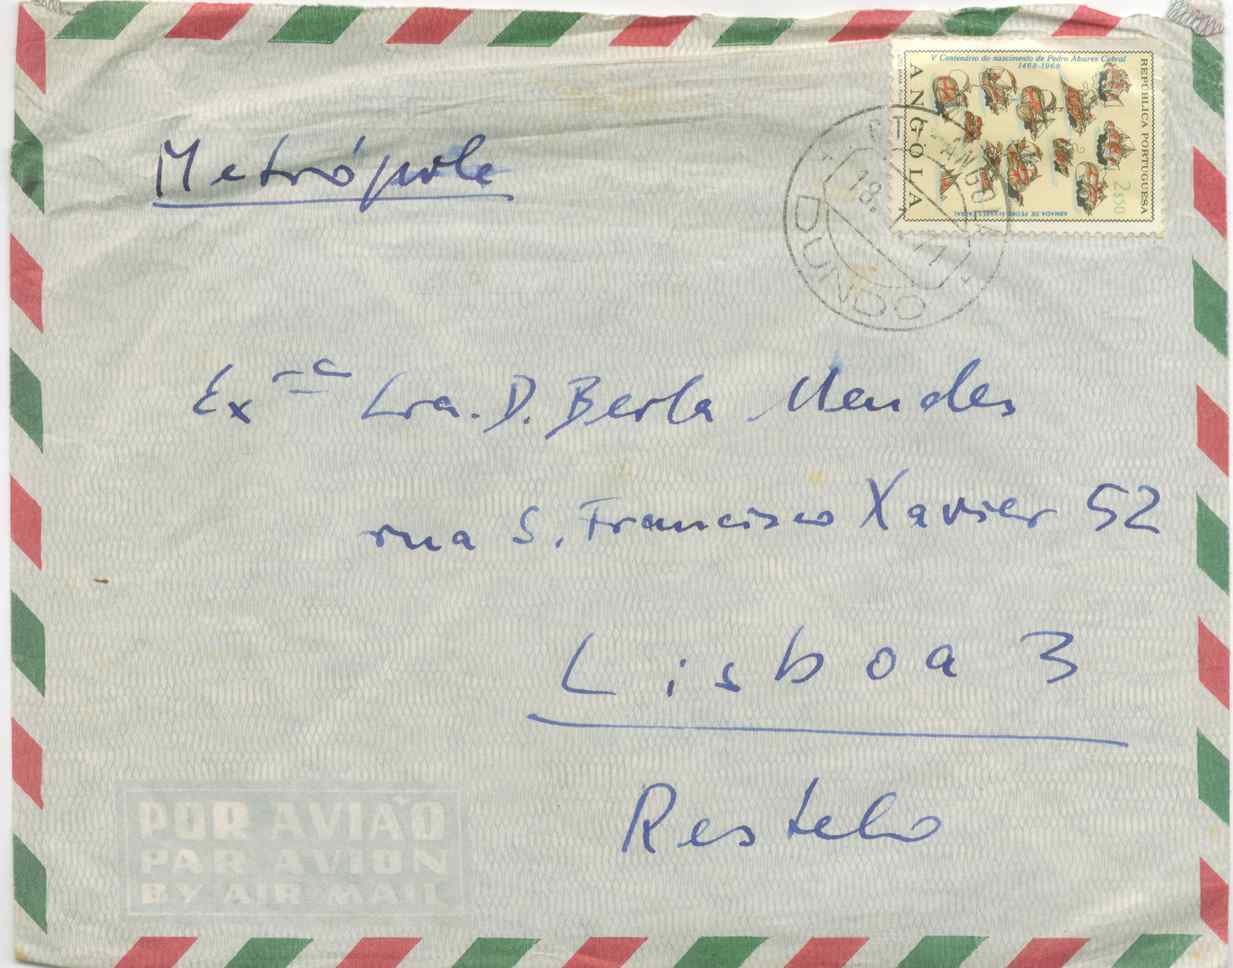 V Centenário do nascimento de Pedro Álvares Cabral
1468-1968
ANGOLA
REPÚBLICA PORTUGUESA
2$50
ARMADA DE PEDRO ÁLVARES CABRAL
DUNDO
Metrópole
Exma Sra. D. Berta Mendes
rua S. Francisco Xavier 52
Lisboa 3
Restelo
POR AVIÃO
PAR AVION
BY AIR MAIL